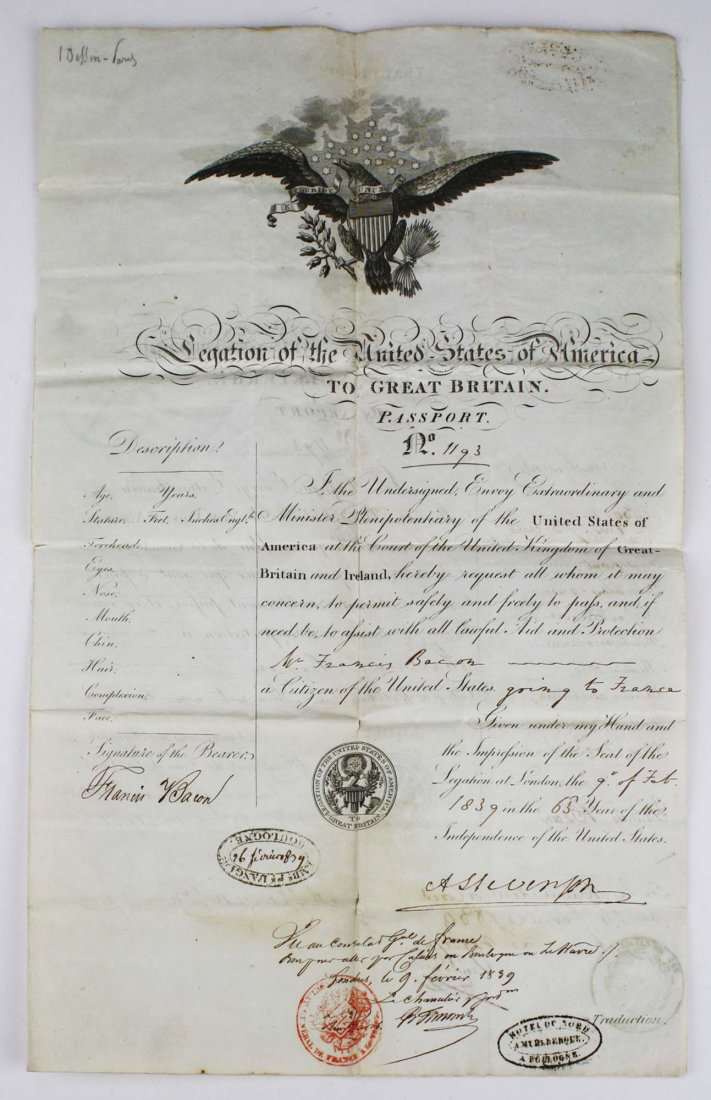 E PLURIBUS UNUM
Legation of the United States of America
TO GREAT BRITAIN.
PASSPORT.
No. 1193
Description.
Age, Years,
Stature, Feet, Inches Engl.h
Forehead,
Eyes,
Nose,
Mouth,
Chin,
Hair,
Complexion,
Face,
Signature of the Bearer,
Francis Bacon
I the Undersigned, Envoy Extraordinary and
Minister Plenipotentiary of the United States of
America at the Court of the United Kingdom of Great-
Britain and Ireland, hereby request all whom it may
concern, to permit safely and freely to pass, and, if
need be, to assist with all lawful Aid and Protection
Mr Francis Bacon
a Citizen of the United States, going to France
Given under my Hand and
the Impression of the Seal of the
Legation at London, the 9th of Feb.
1839 in the 63 Year of the
Independence of the United States.
LEGATION OF THE UNITED STATES OF AMERICA
TO GREAT BRITAIN.
A Stevenson
BOULOGNE.
26 février 1839
Vu au Consulat Gal de france
Bon pour aller par Calais ou Boulogne ou Le Havre
Londres, le 9 février 1839
Le Chancelier
GENERAL DE FRANCE A LONDRES
Traduction.
HOTEL DU NORD
A BOULOGNE.